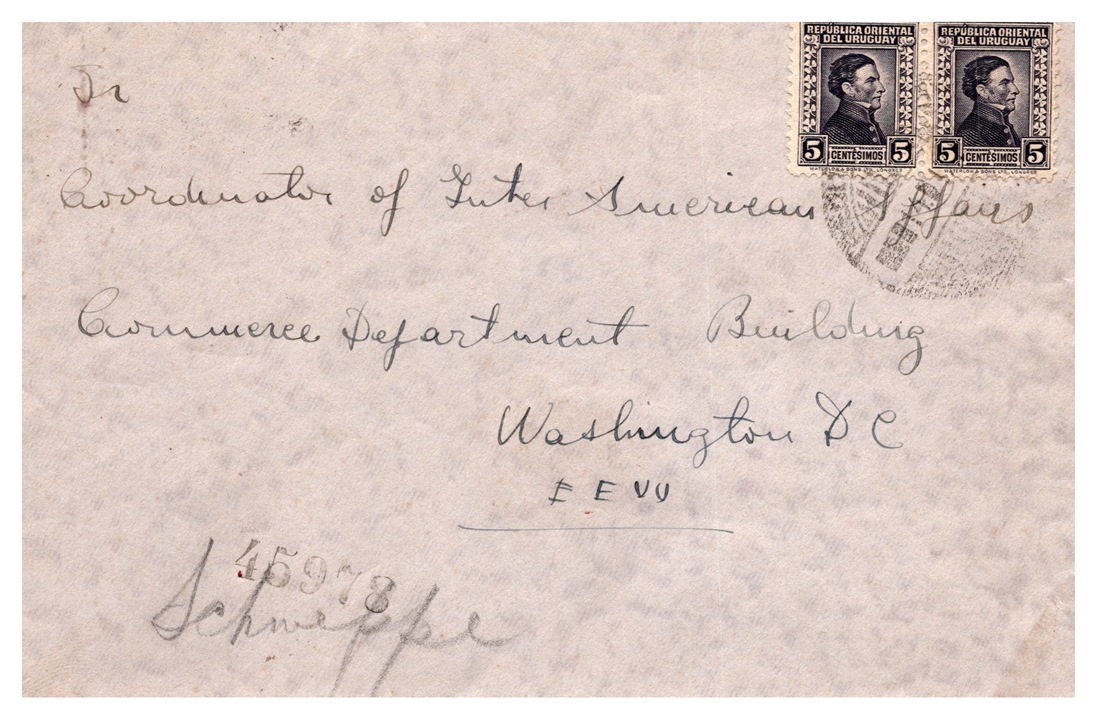 REPÚBLICA ORIENTAL
DEL URUGUAY
5 CENTÉSIMOS 5
WATERLOW & SONS LTD. LONDRES
REPÚBLICA ORIENTAL
DEL URUGUAY
5 CENTÉSIMOS 5
WATERLOW & SONS LTD. LONDRES
Sr
Coordinator of Inter American Affairs
Commerce Department Building
Washington D C
E E U U
45978
Schweppe